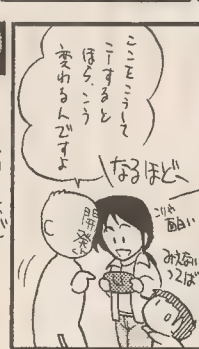 ここをこうして
こーすると
ほら、こう
変わるんですよ
なるほど、
開発
こりゃ
面白い
みえない
ってば